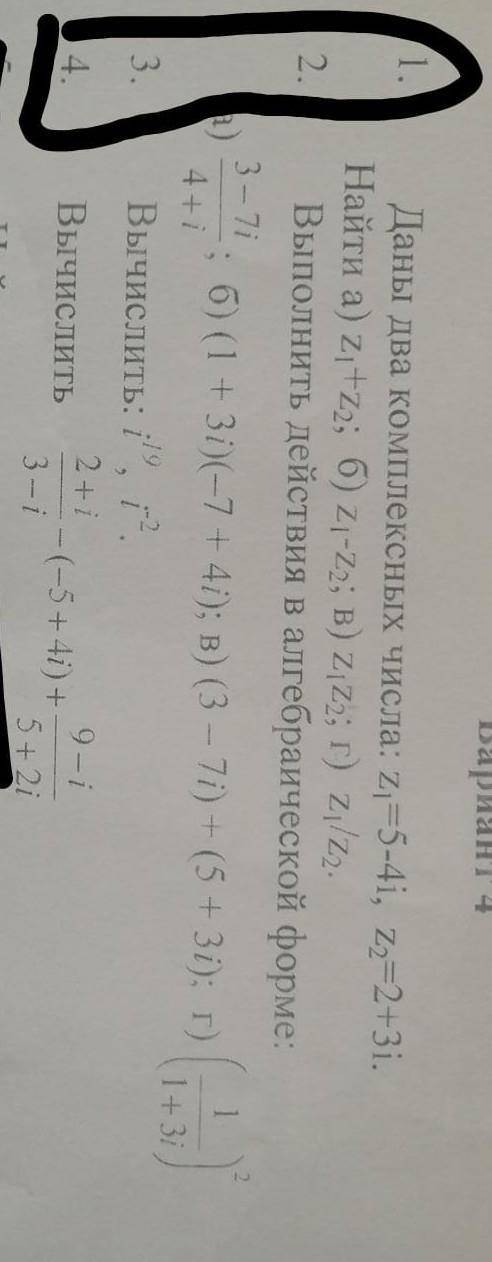 Вариант 4
1. Даны два комплексных числа: z₁=5-4i, z₂=2+3i.
Найти а) z₁+z₂; б) z₁-z₂; в) z₁z₂; г) z₁/z₂.
2. Выполнить действия в алгебраической форме:
а) (3 – 7i)/(4 + i); б) (1 + 3i)(–7 + 4i); в) (3 – 7i) + (5 + 3i); г) (1/(1 + 3i))²
3. Вычислить: i¹⁹, i⁻².
4. Вычислить (2 + i)/(3 – i) – (–5 + 4i) + (9 – i)/(5 + 2i)